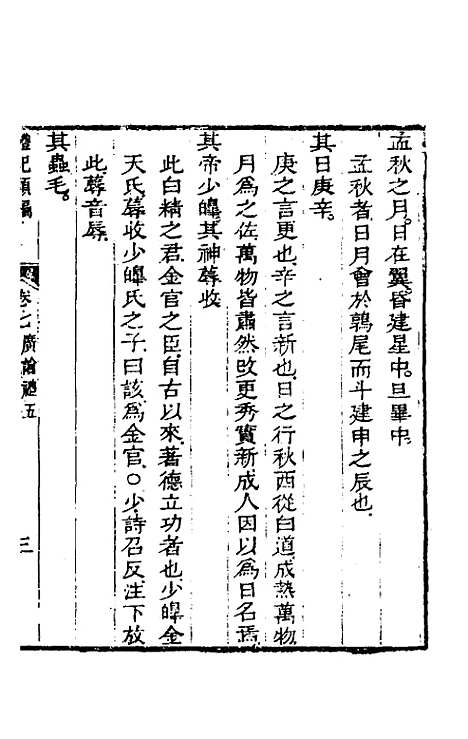 孟秋之月。日在翼。昏建星中。旦畢中。
孟秋者日月會於鶉尾而斗建申之辰也、
其日庚辛。
庚之言更也、辛之言新也、日之行秋西從白道、成熟萬物、
月爲之佐、萬物皆肅然改更、秀實新成、人因以爲日名焉、
其帝少皥。其神蓐收。
此白精之君、金官之臣、自古以來、著德立功者也、少皥金
天氏、蓐收少皥氏之子、曰該、爲金官、○少、詩召反、注下放
此、蓐音辱、
其蟲毛。
禮記類編 卷之 廣論禮五 三